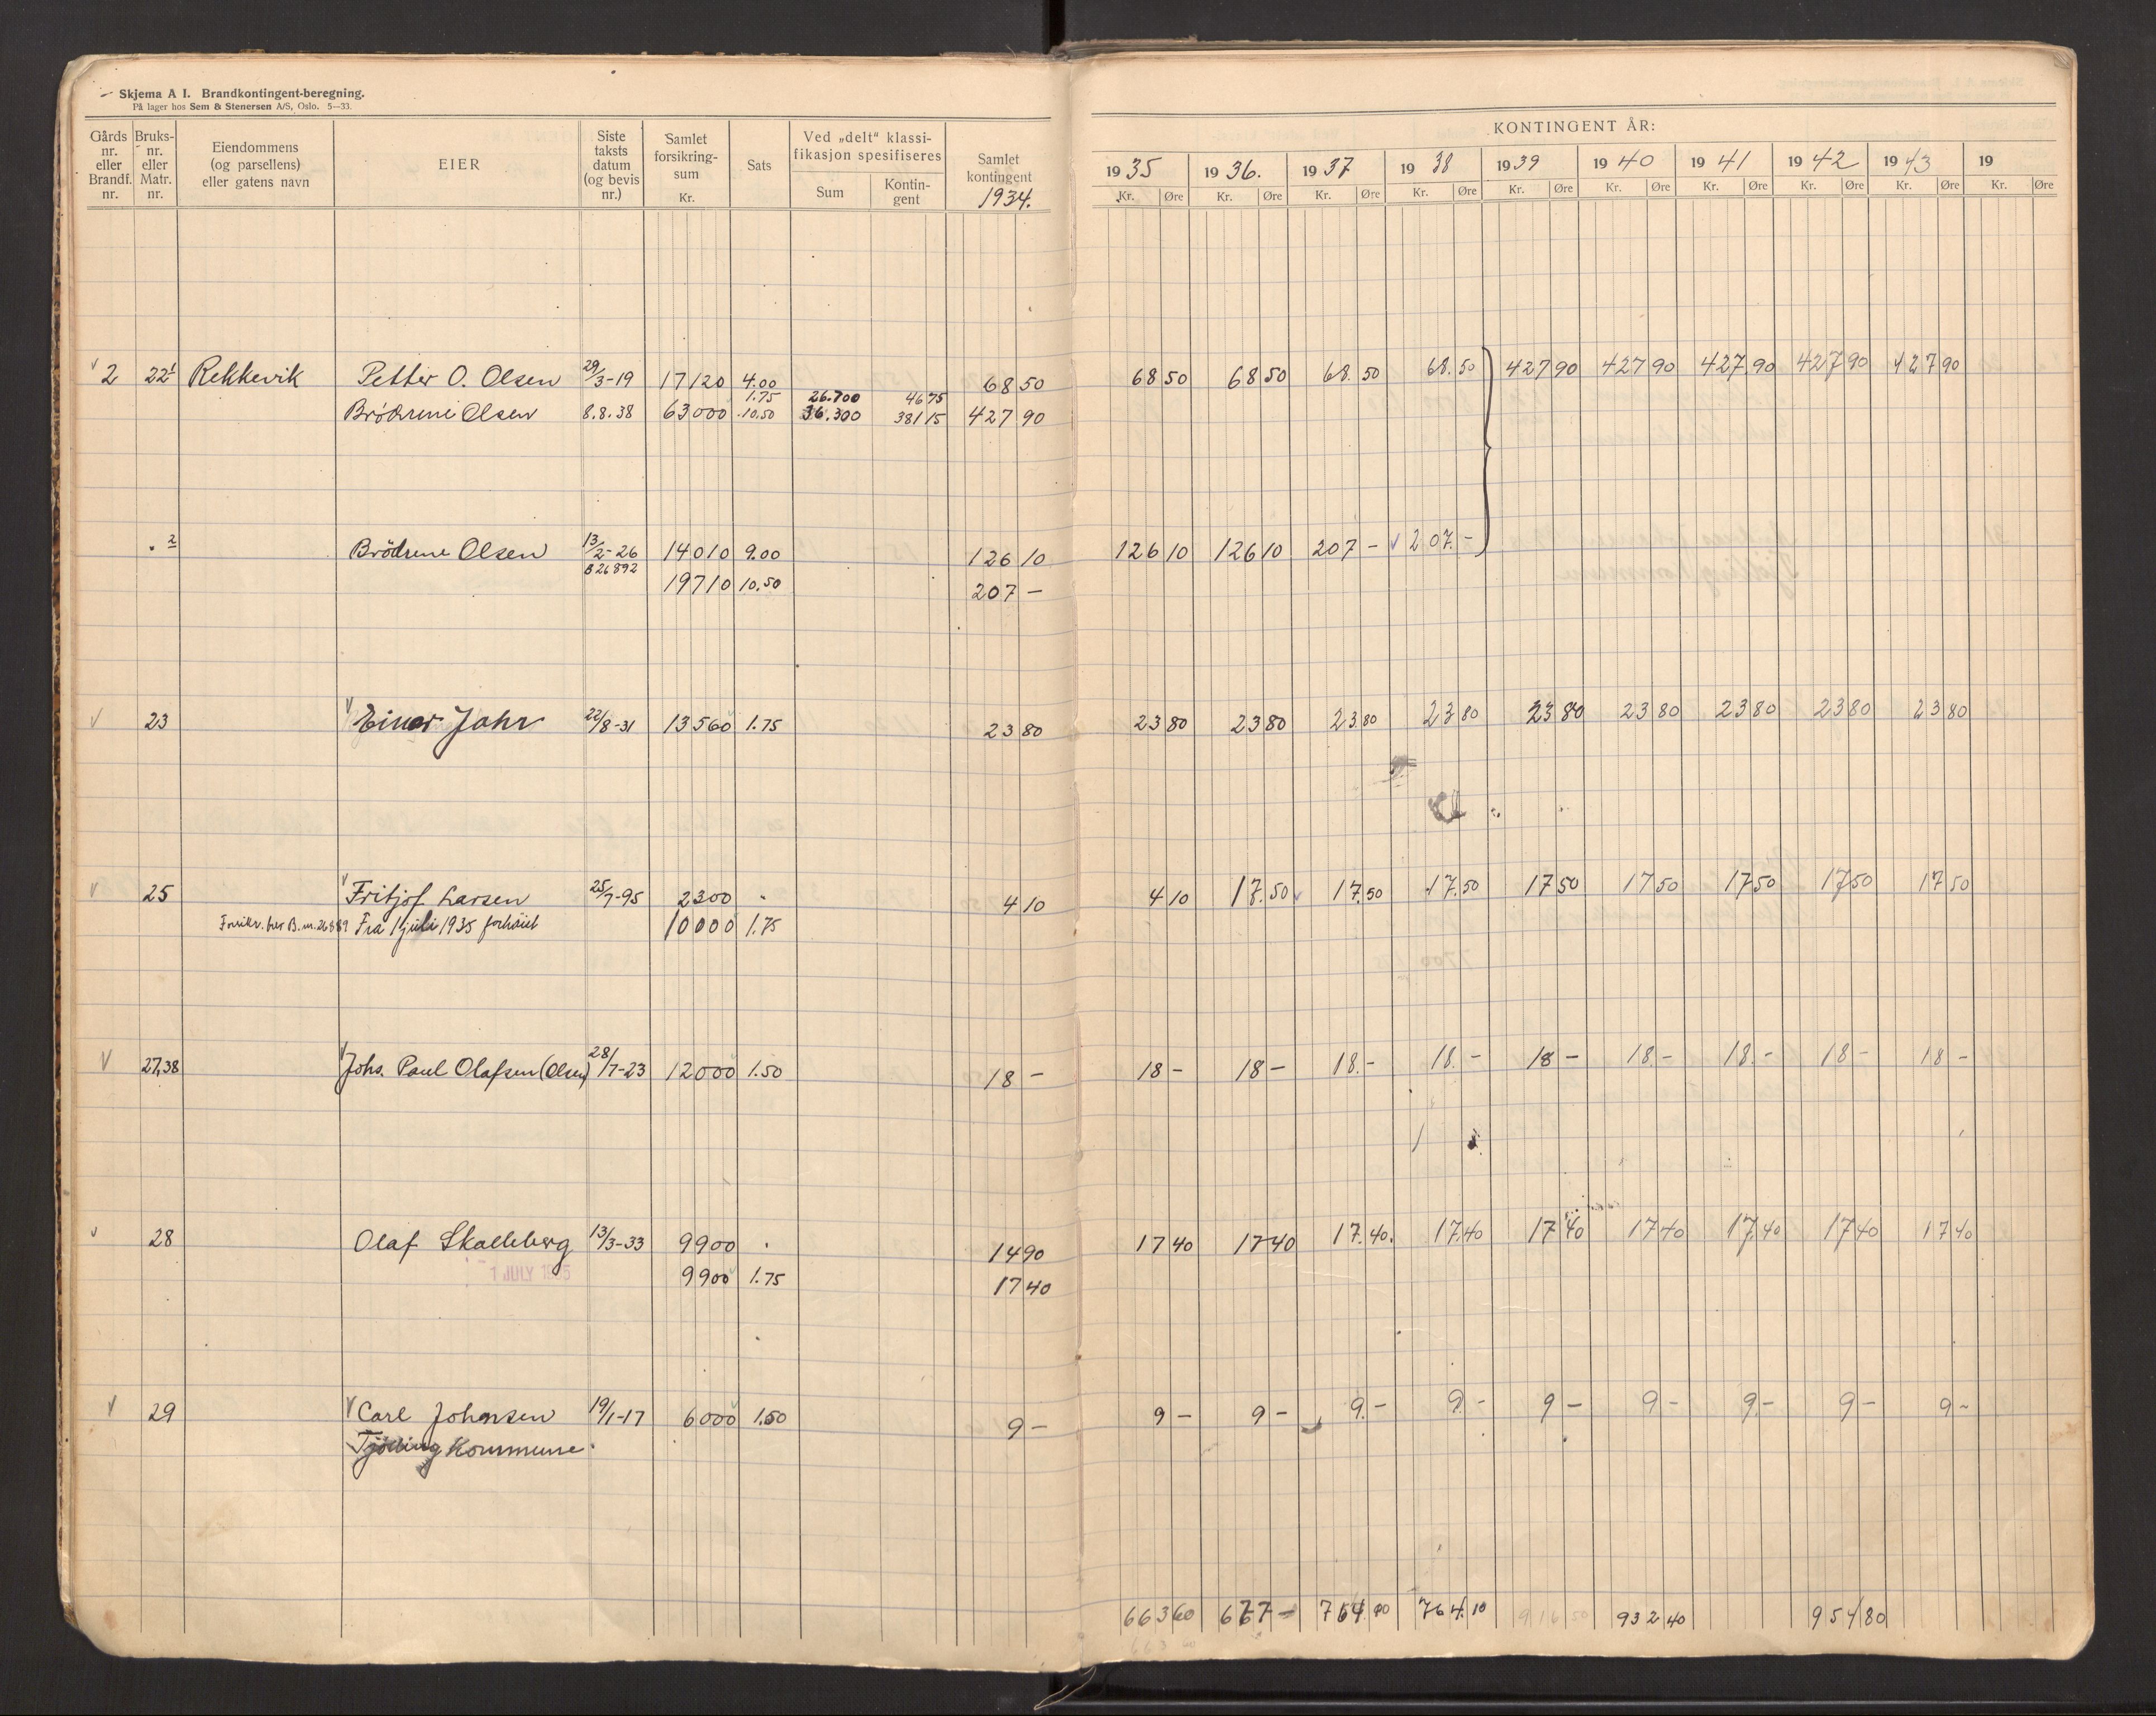 Skjema A I. Brandkontingent-beregning.
På lager hos Sem & Stenersen A/S, Oslo. 5—33.
Gårds nr. eller Brandf. nr.
Bruks- nr. eller Matr. nr.
Eiendommens (og parsellens) eller gatens navn
EIER
Siste taksts datum (og bevis nr.)
Samlet forsikring- sum Kr.
Sats
Ved „delt“ klassi- fikasjon spesifiseres
Sum
Kontin- gent
Samlet kontingent 1934.
KONTINGENT ÅR:
1935 1936. 1937 1938 1939 1940 1941 1942 1943 19
Kr. Øre Kr. Øre Kr. Øre Kr. Øre Kr. Øre Kr. Øre Kr. Øre Kr. Øre Kr. Øre Kr. Øre
2 22 1 Rekkevik Petter O. Olsen 29/3-19 17120 4.00 68 50 68 50 68 50 68.50 68.50 427 90 427 90 427,90 427 90 427 90
1.75 26.700 46 75
Brödrene Olsen 8.8.38 63000 10.50 36.300 381 15 427 90
" 2 Brödrene Olsen 13/2-26 14010 9.00 126 10 126 10 126 10 207 – 207.–
B 26892 19710 10.50 207 –
23 Einar Jahr 22/8-31 13560 1.75 23 80 23 80 23 80 23 80 23 80 23 80 23 80 23 80 23 80 23 80
25 Fritjof Larsen 25/7-95 2300 4 10 4 10 17.50 17.50 17.50 17 50 17 50 17 50 17 50 17 50
Forsikr. her B.nr. 26889 Fra 1 juli 1935 forhöiet 10000 1.75
27,38 Johs. Paul Olafsen (Olsen) 28/7-23 12000 1.50 18 – 18 – 18 – 18.– 18.– 18 – 18.– 18.– 18 – 18 –
28 Olaf Skalleberg 13/3-33 9900 14 90 17 40 17 40 17.40. 17,40 17 40 17 40 17,40 17 40 17 40
1 JULY 1935 9900 1.75 17 40
29 Carl Johansen 19/1-17 6000 1.50 9 – 9 – 9 – 9.– 9.– 9 – 9 – 9.– 9 – 9 –
Tjölling Kommune.
663 60 677 – 764.10 764.10 916 50 932 40 954 80